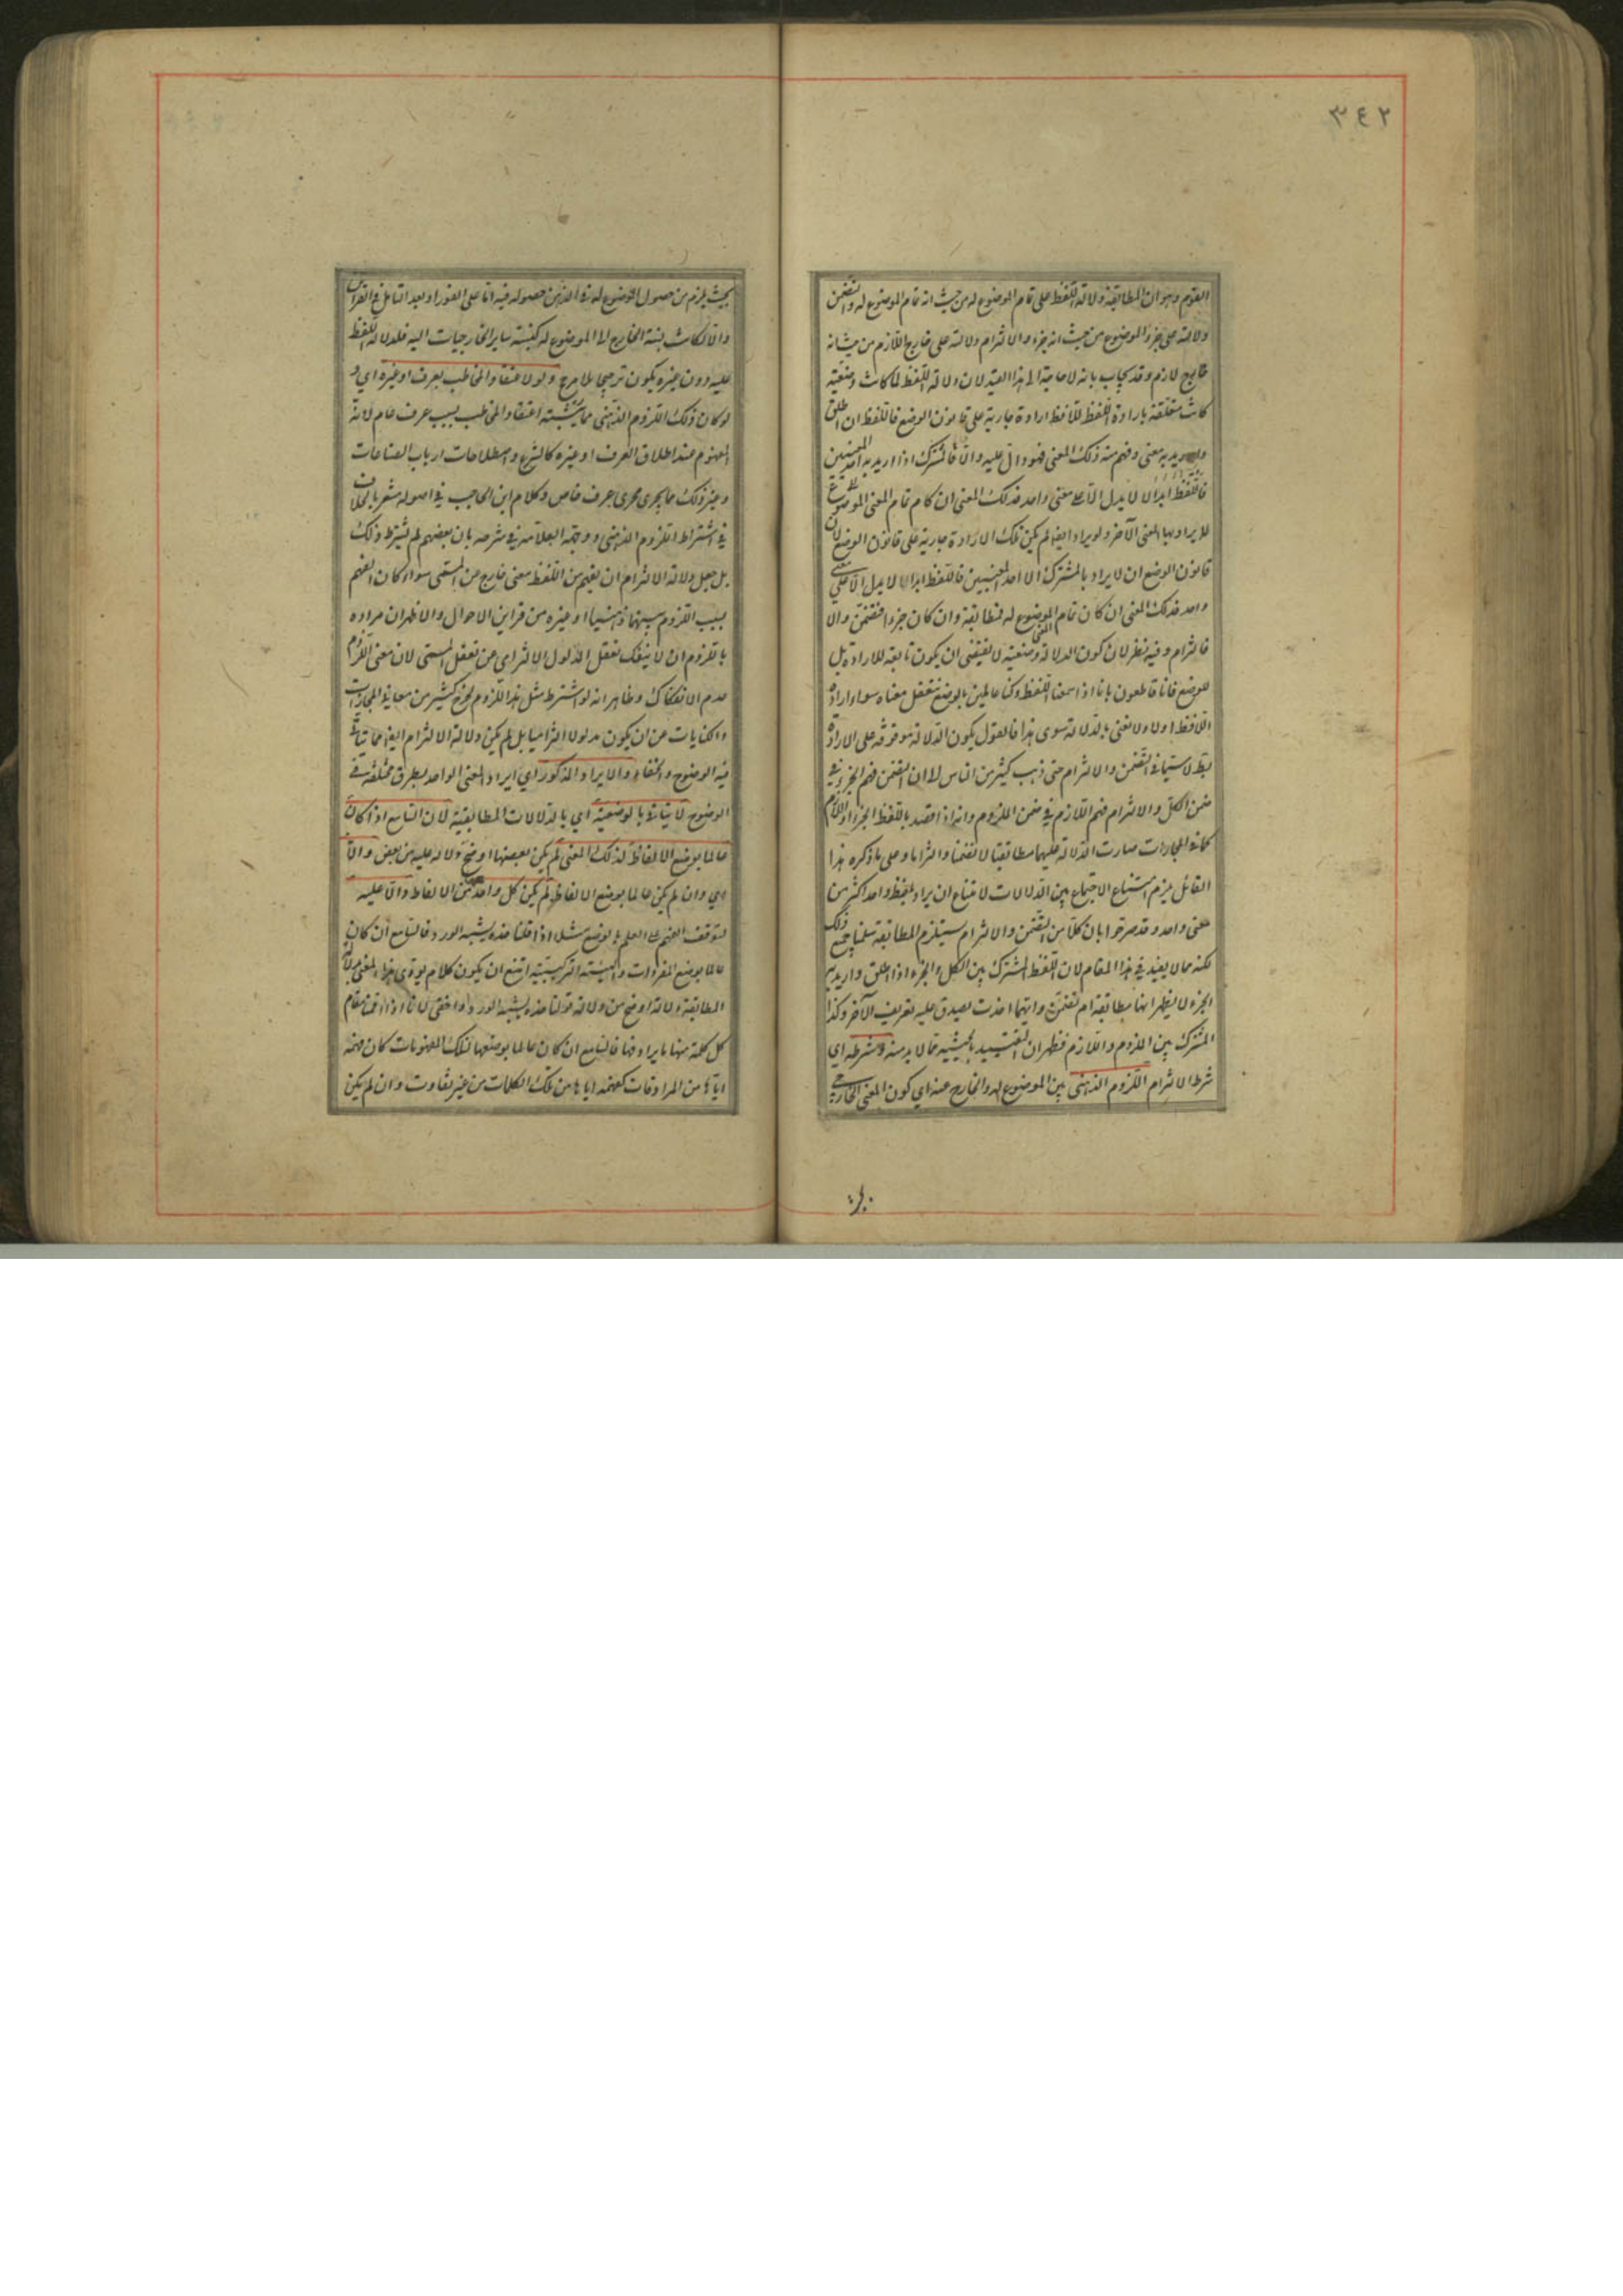 ٣٤٢
القوم وهو ان المطابقة دلالة اللفظ على تمام الموضوع له من حيث انه تمام الموضوع له والتضمن
دلالته على جزء الموضوع من حيث انه جزء والالتزام دلالته على خارج اللازم من حيث انه
خارج لازم وقد يجاب بانه لا حاجة الى هذا القيد لان دلالة اللفظ لما كانت وضعية
كانت متعلقة بارادة اللفظ للافظ ارادة جارية على قانون الوضع فاللفظ ان اطلق
واريد به معنى وفهم منه ذلك المعنى فهو دال عليه والا فلا فالمشترك اذا اريد به احد المعنيين
لا يراد بها المعنى الآخر ولو يراد ايضا لم يكن تلك الارادة جارية على قانون الوضع لان
قانون الوضع ان لا يراد بالمشترك الا احد المعنيين فاللفظ ابدا لا يدل الا على معنى
واحد فذلك المعنى ان كان تمام الموضوع له فمطابقة وان كان جزءا فتضمن والا
فالتزام وفيه نظر لان كون الدلالة وضعية لا يقتضي ان يكون تابعة للارادة بل
للوضع فانا قاطعون بانا اذا سمعنا اللفظ وكنا عالمين بالوضع نتعقل معناه سواء اراده
اللافظ او لا ولا نعني بالدلالة سوى هذا فالقول بكون الدلالة موقوفة على الارادة
بط لا سيما في التضمن والالتزام حتى ذهب كثير من الناس الى ان التضمن فهم الجزء في
ضمن الكل والالتزام فهم اللازم في ضمن الملزوم وانه اذا قصد باللفظ الجزء او اللازم
كما في المجازات صارت الدلالة عليهما مطابقة لا تضمنا والتزاما وعلى ما ذكره هذا
القائل يلزم امتناع الاجتماع بين الدلالات لامتناع ان يراد بلفظ واحد اكثر من
معنى واحد وقد صرحوا بان كلا من التضمن والالتزام يستلزم المطابقة سلمنا جميع ذلك
لكنه مما لا يفيد في هذا المقام لان اللفظ المشترك بين الكل والجزء اذا اطلق واريد به
الجزء لا يظهر انها مطابقة ام تضمن وايهما اخذت يصدق عليه تعريف الآخر وكذا
المشترك بين الملزوم واللازم فظهر ان التقييد بالحيثية مما لا بد منه وشرطه اي
شرط الالتزام اللزوم الذهني بين الموضوع له والخارج عنه اي كون المعنى الخارجي
بحيث يلزم من حصول الموضوع له في الذهن حصوله فيه اما على الفور او بعد التامل في القراين
والا لكانت نسبة الخارج الى الموضوع له كنسبة ساير الخارجيات اليه فدلالة اللفظ
عليه دون غيره يكون ترجيحا بلا مرجح ولو لاعتقاد المخاطب بعرف او غيره اي ولو
لو كان ذلك اللزوم الذهني مما يثبته اعتقاد المخاطب بسبب عرف عام لانه
المفهوم عند اطلاق العرف او غيره كالشرع واصطلاحات ارباب الصناعات
وغير ذلك مما يجري مجرى عرف خاص وكلام ابن الحاجب في اصوله مشعر بالخلاف
في اشتراط اللزوم الذهني ووجهه العلامة في شرحه بان بعضهم لم يشترط ذلك
بل جعل دلالة الالتزام ان يفهم من اللفظ معنى خارج عن المسمى سواء كان الفهم
بسبب اللزوم بينهما ذهنيا او غيره من قراين الاحوال والاظهر ان مراده
باللزوم ان لا ينفك تعقل المدلول الالتزامي عن تعقل المسمى لان معنى اللزوم
عدم الانفكاك وظاهر انه لو اشترط مثل هذا اللزوم لخرج كثير من معاني المجازات
والكنايات عن ان يكون مدلولا التزاميا بل لم يكن دلالة الالتزام ايضا مما يتأتى
فيه الوضوح والخفاء والايراد المذكور اي ايراد المعنى الواحد بطرق مختلفة في
الوضوح لا يتأتى بالوضعية اي بالدلالات المطابقية لان السامع اذا كان
عالما بوضع الالفاظ لذلك المعنى لم يكن بعضها اوضح دلالة عليه من بعض والا
اي وان لم يكن عالما بوضع الالفاظ لم يكن كل واحد من الالفاظ دالا عليه
لتوقف الفهم على العلم بالوضع مثلا اذا قلنا خده يشبه الورد فالسامع ان كان
عالما بوضع المفردات والهيئة التركيبية امتنع ان يكون كلام يؤدي هذا المعنى بدلالة
المطابقة دلالة اوضح من دلالة قولنا خده يشبه الورد او اخفى لانا اذا اقمنا مقام
كل كلمة منها ما يرادفها فالسامع ان كان عالما بوضعها لتلك المفهومات كان فهمه
اياها من المرادفات كفهمه اياها من تلك الكلمات من غير تفاوت وان لم يكن